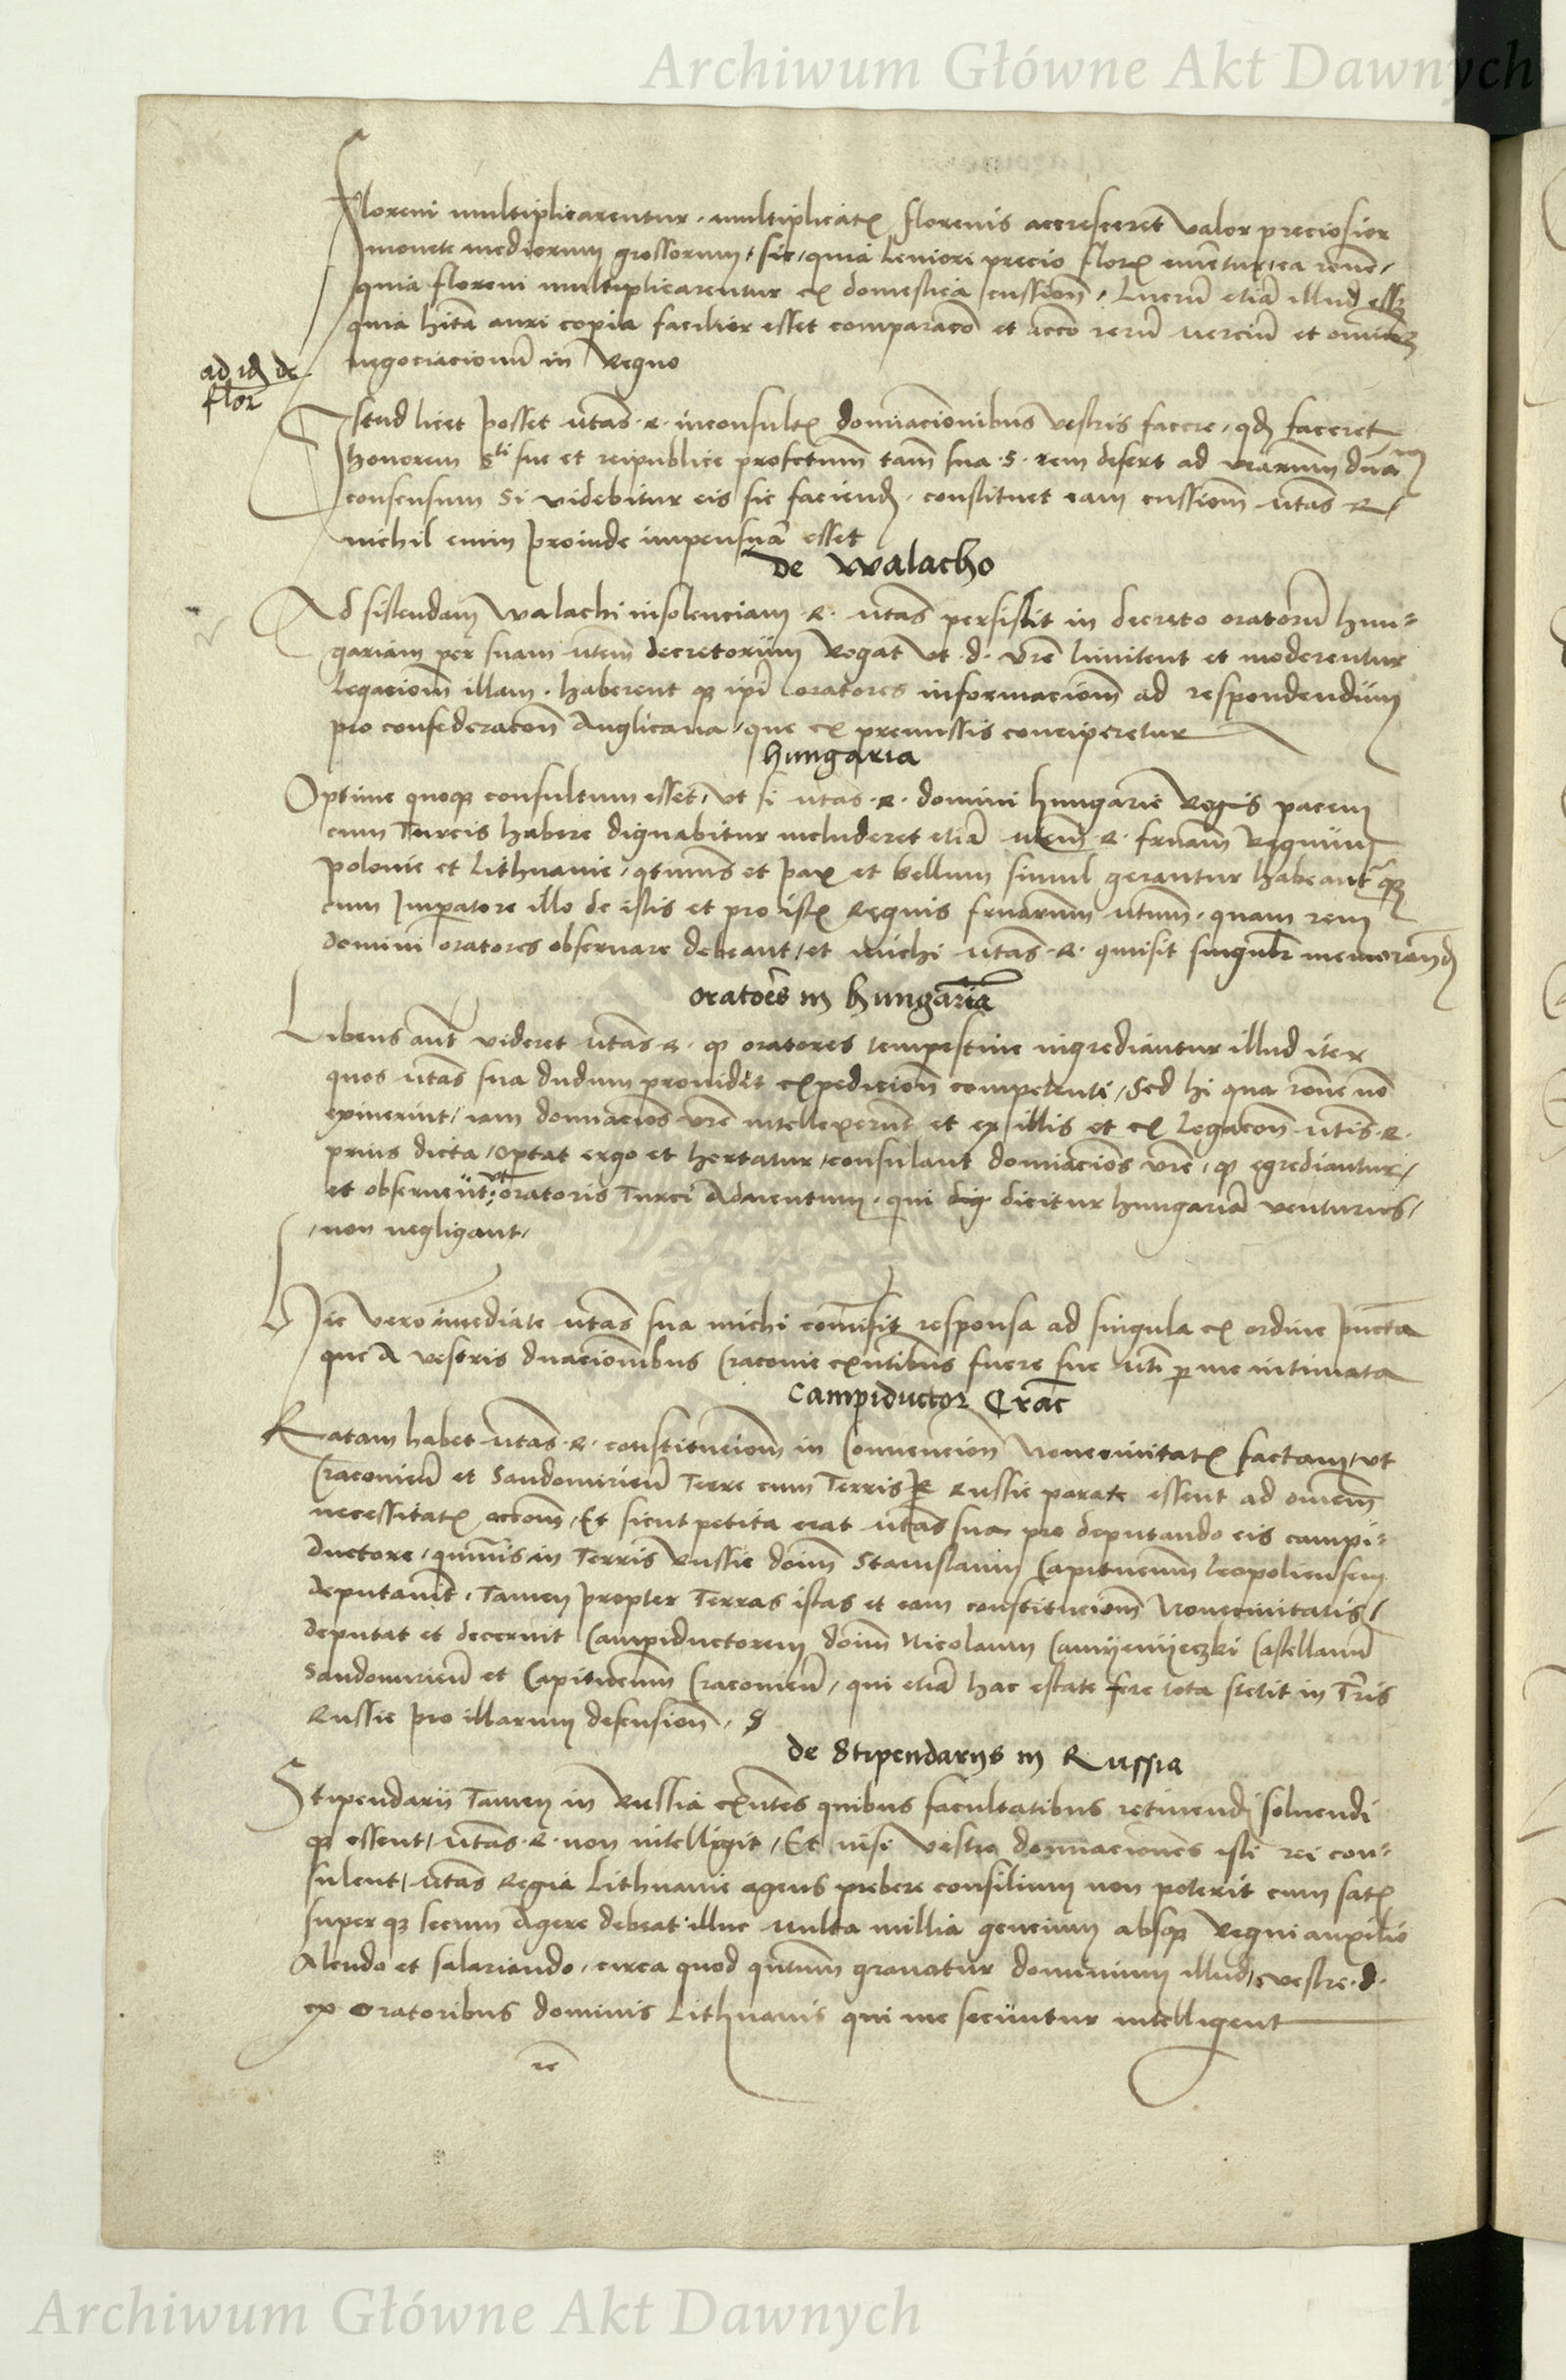 Archiwum Główne Akt Dawnych
Floreni multiplicarentur, multiplicatis florenis accresceret valor preciosior
monete mediorum grossorum, sic, quia leniori precio flor emeretur, ea rone,
quia floreni multiplicarentur ex domestica cussione, Lucrum etiam illud esset
quia hita auri copia facilior esset comparaco et acco rerum merciu et omnium
negociacionu in Regno
ad id de
flor
Istud licet posset mtas R. inconsultis dominacionibus vestris facere, qd faceret
honorem Sti sue et reipublice profectum tam sua S. rem defert ad vrarum dna
consensum Si videbitur eis sic faciend, constituet eam cussiom mtas R,
nichil enim proinde impensura esset
de Walacho
Ad sistendam Walachi insolenciam R. mtas persistit in decreto oratoru hun=
gariam per suam mtem decretorum Rogat vt d. vre limitent et moderentur
legaciom illam. haberent qz ipi oratores informaciom ad respondendum
pro confederacon Anglicana, que ex premissis conciperetur
hungaria
Optime quoqz consultum esset, vt si mtas R. domini hungarie Regis pacem
cum Turcis habere dignabitur includeret etia mtem R. fruam Regnum
polonie et Lithuanie, qtenus et pax et bellum simul gerantur habeant qz
cum Imperatore illo de istis et pro istis Regnis fruarum mtum, quam rem
domini oratores obseruare debeant, et michi mtas R. comisit singulr memorand
oratores in hungaria
Libens aut videret mtas R. qz oratores tempestiue ingrediantur illud iter
quos mtas sua dudum prouidit expedicion competenti, Sed hi qua rone no
exiuerint, iam dominacios vre intellexerunt et ex illis et ex legacon mtis R.
prius dicta, optat ergo et hortatur, consulant dominacios vre, qz egrediantur,
et obseruent, vt oratoris Turci Aduentum, qui dicitur hungaria venturus,
non negligant,
Hic vero imediate mtas sua michi comisit responsa ad singula ex ordine puncta
que A vestris dnacionibus Cracouie exntibus fuere sue mti per me intimata
Campiductor Crac
Ratam habet mtas R. constituciom in Conuencion Nouecinitatis factam, vt
Cracouien et Sandomirien Terre cum Terris Russie parate essent ad omem
necessitatis accom, Et sicut petita erat mtas sua pro deputando eis campi=
ductore, quamuis in Terris Russie doim Stanislaum Capitaneum Leopoliensem
deputauit, Tamen propter Terras istas et eam constituciom Nouecinitatis,
deputat et decernit Campiductorem doim Nicolaum Camyenyeczki Castellanu
Sandomirien et Capitaneum Cracouien, qui etia hac estate fere tota stetit in Tris
Russie pro illarum defension,
de Stipendarijs in Russia
Stipendarii Tamen in Russia exntes quibus facultatibus retinendi soluendi
qz essent, mtas R. non intelligit, Et nisi vestre dominaciones isti rei con=
sulent, mtas Regia Lithuanie agens prebere consilium non poterit cum satis
super qz secum Agere debeat illuc multa millia gencium absqz Regni auxilio
Alendo et salariando, circa quod quntum grauatur dominium illud, vestre d.
ex oratoribus dominis Lithuanis qui me secuntur intelligent
Archiwum Główne Akt Dawnych